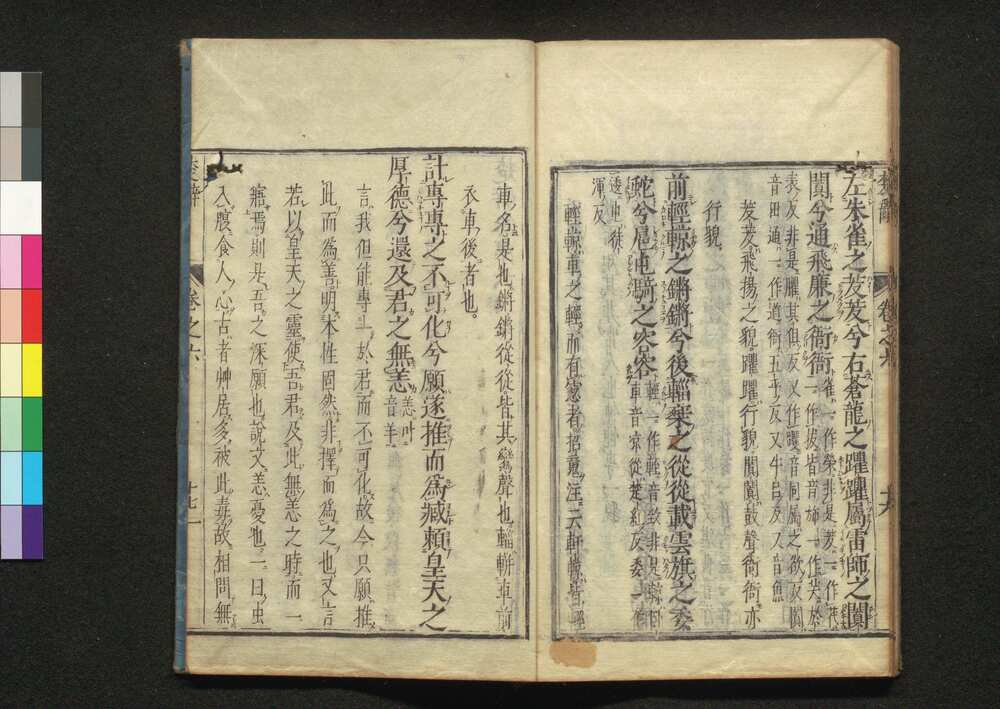 左朱雀之茇茇兮右蒼龍之躍躍屬雷師之闐
闐兮通飛廉之衙衙
雀一作榮非是茇一作茷
一作拔皆音旆一作芺於
表反非是躍其俱反又作躣音同屬之欲反闐
音田通一作道衙五乎反又牛呂反又音魚
茇茇飛揚之貌躍躍行貌闐闐鼓聲衙衙亦
行貌
前輕輬之鏘鏘兮後輜椉之從從載雲旗之委
蛇兮扈屯騎之容容
輕一作輊音致非是輬
車音凉從楚紅反委一作
逶屯徒
渾反
輕輬車之輕而有窻者招䰟注云軒輬皆輕
車名是也鏘鏘從從皆其鸞聲也輜軿車前
衣車後者也
計專專之不可化兮願遂推而為臧賴皇天之
厚德兮還及君之無恙
恙叶
音羊
言我但能專於君而不可化故今只願推
此而為善明本性固然非擇而為之也又言
若以皇天之靈使吾君及此無恙之時而一
寤焉則是吾之深願也說文恙憂也一曰虫
入腹食人心古者艸居多被此毒故相問無
楚辭
卷之六